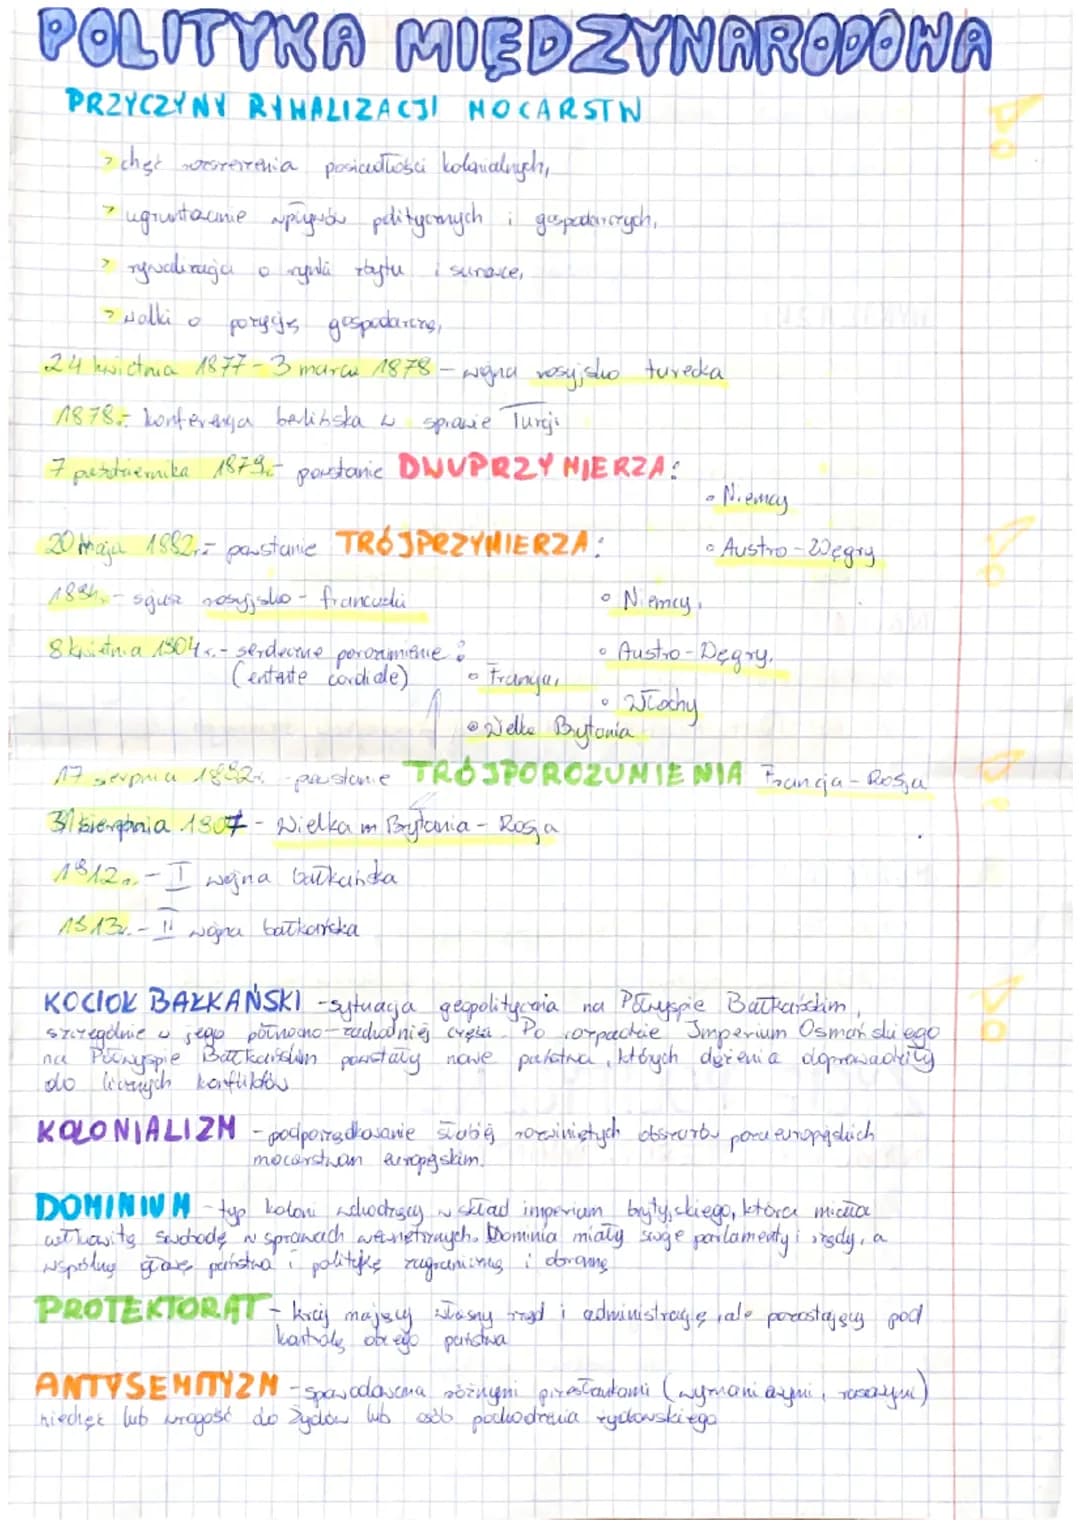 POLITYKA MIĘDZYNARODOWA
PRZYCZYNY RYWALIZACJI MOCARSTW
> chęć rozszerzenia posiadłości kolonialnych,
> ugruntowanie wpływów politycznych i gospodarczych,
> rywalizacja o rynki zbytu i surowce,
> walki o pozycję gospodarczą,
24 kwietnia 1877 - 3 marca 1878 - wojna rosyjsko turecka
1878r. - konferencja berlińska w sprawie Turcji
7 października 1879r. - powstanie DWUPRZYMIERZA:
• Niemcy
• Austro-Węgry
20 maja 1882r. - powstanie TRÓJPRZYMIERZA:
• Niemcy,
• Austro-Węgry,
• Włochy
1894r. - sojusz rosyjsko-francuski
8 kwietnia 1904r. - serdeczne porozumienie:
(entente cordiale)
• Francja,
• Wielka Brytania
17 sierpnia 1892r. - powstanie TRÓJPOROZUMIENIA Francja - Rosja
31 sierpnia 1907 - Wielka m Brytania - Rosja
1912r. - I wojna bałkańska
1913r. - II wojna bałkańska
KOCIOŁ BAŁKAŃSKI - sytuacja geopolityczna na Półwyspie Bałkańskim,
szczególnie w jego północno-zachodniej części. Po rozpadzie Imperium Osmańskiego
na Półwyspie Bałkańskim powstały nowe państwa, których dążenia doprowadziły
do licznych konfliktów
KOLONIALIZM - podporządkowanie słabiej rozwiniętych obszarów pozaeuropejskich
mocarstwom europejskim.
DOMINIUM - typ koloni wchodzący w skład imperium brytyjskiego, która miała
całkowitą swobodę w sprawach wewnętrznych. Dominia miały swoje parlamenty i rządy, a
wspólną głowę państwa i politykę zagraniczną i obronną
PROTEKTORAT - kraj mający własny rząd i administrację, ale pozostający pod
kontrolą obcego państwa
ANTYSEMITYZM - spowodowana różnymi przesłankami (wyznaniowymi, rasowymi)
niechęć lub wrogość do Żydów lub osób pochodzenia żydowskiego